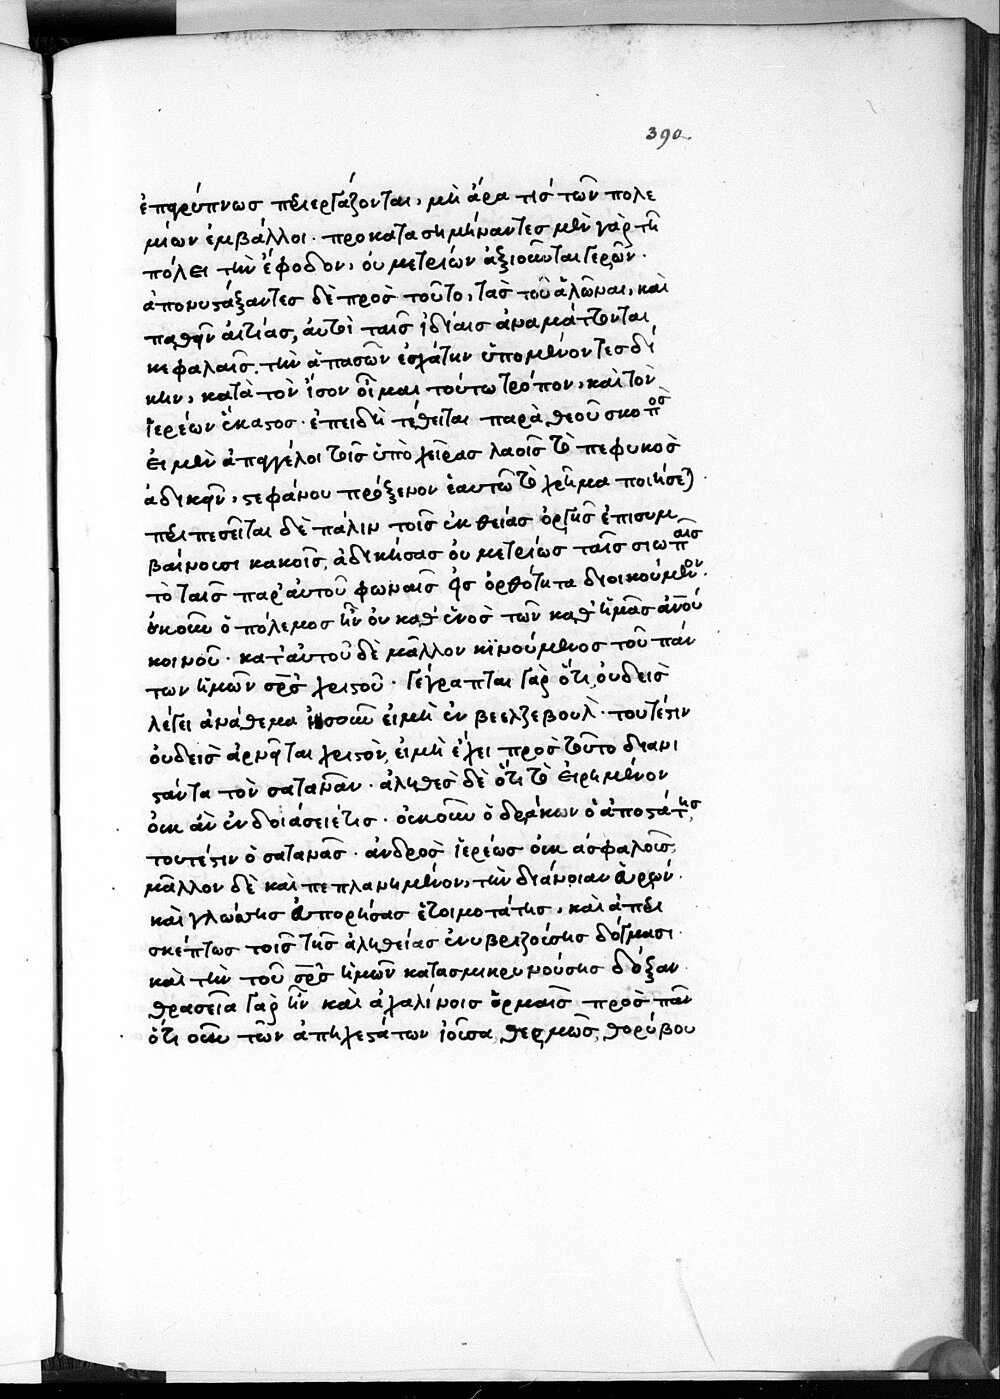 390
ἐπαγρύπνως περιεργάζονται, μὴ ἄρα τίς τῶν πολε
μίων ἐμβάλλοι· προκατασημήναντες μὲν γὰρ τῇ
πόλει τὴν ἔφοδον, οὐ μετρίων ἀξιοῦνται γερῶν·
ἀπονυστάξαντες δὲ πρὸς τοῦτο, τὰς τοῦ ἁλῶναι, καὶ
παθεῖν αἰτίας, αὐτοὶ ταῖς ἰδίαις ἀναμάττονται
κεφαλαῖς. τὴν ἁπασῶν ἐσχάτην ὑπομένοντες δί
κην, κατὰ τὸν ἴσον οἶμαι τούτω τρόπον, καὶ τὸν
ἱερέων ἕκαστος· ἐπειδὴ τέθειται παρὰ θεοῦ σκοπὸς
εἰ μὲν ἀπαγγέλοι τοῖς ὑπὸ χεῖρας λαοῖς τὸ πεφυκὸς
ἀδικεῖν, στεφάνου πρόξενον ἑαυτῶ τὸ χρῆμα ποιήσεται·
περιπεσεῖται δὲ πάλιν τοῖς ἐκ θείας ὀργῆς ἐπισυμ
βαίνουσι κακοῖς, ἀδικήσας οὐ μετρίως ταῖς σιωπαῖς
τὸ ταῖς παρ' αὐτοῦ φωναῖς εἰς ὀρθότητα διοικούμενον·
οὐκοῦν ὁ πόλεμος ἦν οὐ καθ' ἑνὸς τῶν καθ' ἡμᾶς ἀνου
κοινοῦ· κατ' αὐτοῦ δὲ μᾶλλον κινούμενος τοῦ πάν
των ἡμῶν σρς χριστοῦ· γέγραπται γὰρ ὅτι οὐδεὶς
λέγει ἀνάθεμα ἰησοῦν εἰ μὴ ἐν βεελζεβοὺλ· τουτέστιν
οὐδεὶς ἀρνεῖται χριστὸν, εἰ μὴ ἔχει πρὸς τοῦτο διανι
στάντα τὸν σατανᾶν· ἀληθὲς δὲ ὅτι τὸ εἰρημένον
οὐκ ἂν ἐνδοιάσειέ τις· οὐκοῦν ὁ δράκων ὁ ἀποστάτης
τουτέστιν ὁ σατανᾶς· ἀνδρὸς ἱερέως οὐκ ἀσφαλοῦς,
μᾶλλον δὲ καὶ πεπλανημένον, τὴν διάνοιαν εὑρὼν·
καὶ γλώττης εὐπορήσας ἑτοιμοτάτης, καὶ ἀπερι
σκέπτως τοῖς τῆς ἀληθείας ἐνυβριζούσης δόγμασι·
καὶ τὴν τοῦ σρς ἡμῶν κατασμικρυνούσης δόξαν·
θρασεῖα γὰρ ἦν καὶ ἀχαλίνοις ὁρμαῖς πρὸς πᾶν
ὅτι οὖν τῶν ἀπηχεστάτων ἰοῦσα, θερμῶς, θορύβου